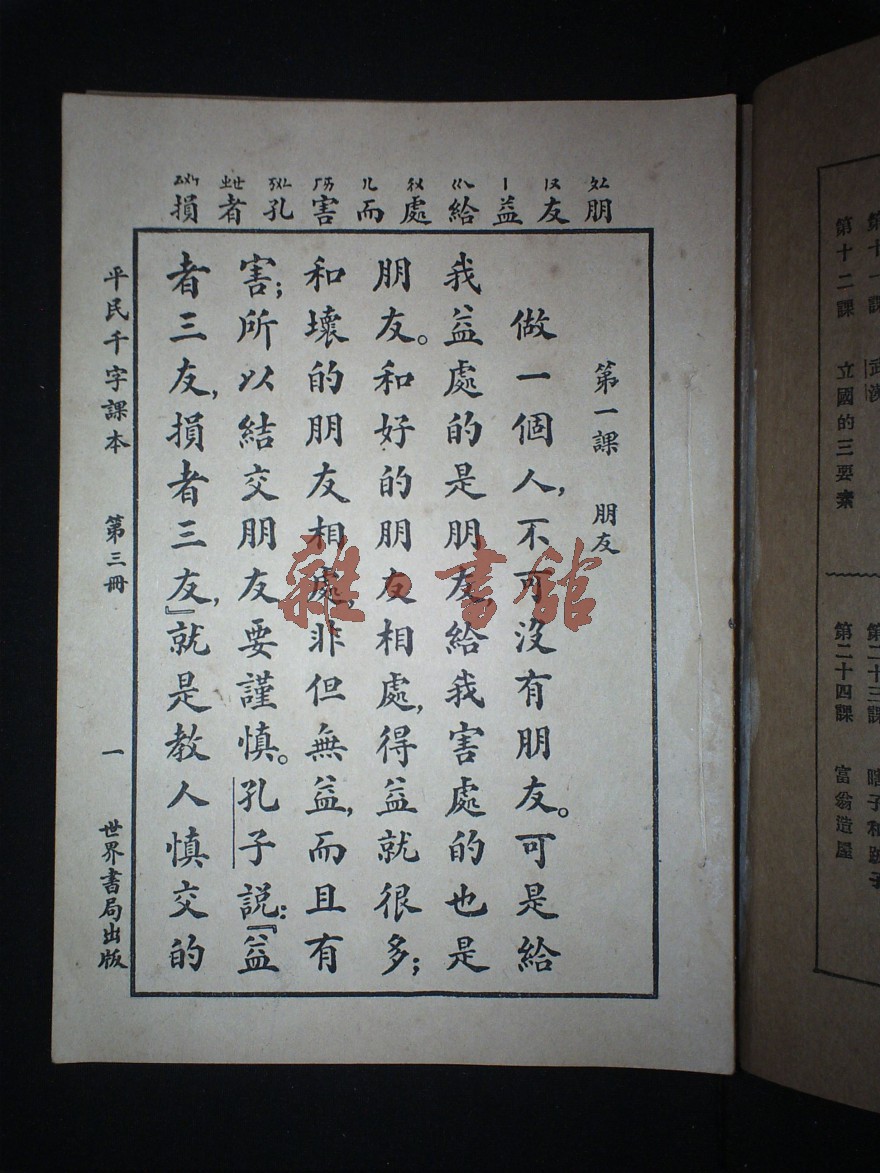 第十一課 武漢
第十二課 立國的三要素
第二十三課 瞎子和跛子
第二十四課 富翁造屋
朋友益給處而害孔者損
第一課 朋友
做一個人,不可沒有朋友。可是給
我益處的是朋友,給我害處的也是
朋友。和好的朋友相處,得益就很多;
和壞的朋友相處,非但無益,而且有
害;所以結交朋友要謹慎。孔子説:『益
者三友,損者三友,』就是教人慎交的
平民千字課本 第三冊 一 世界書局出版
雜·書館